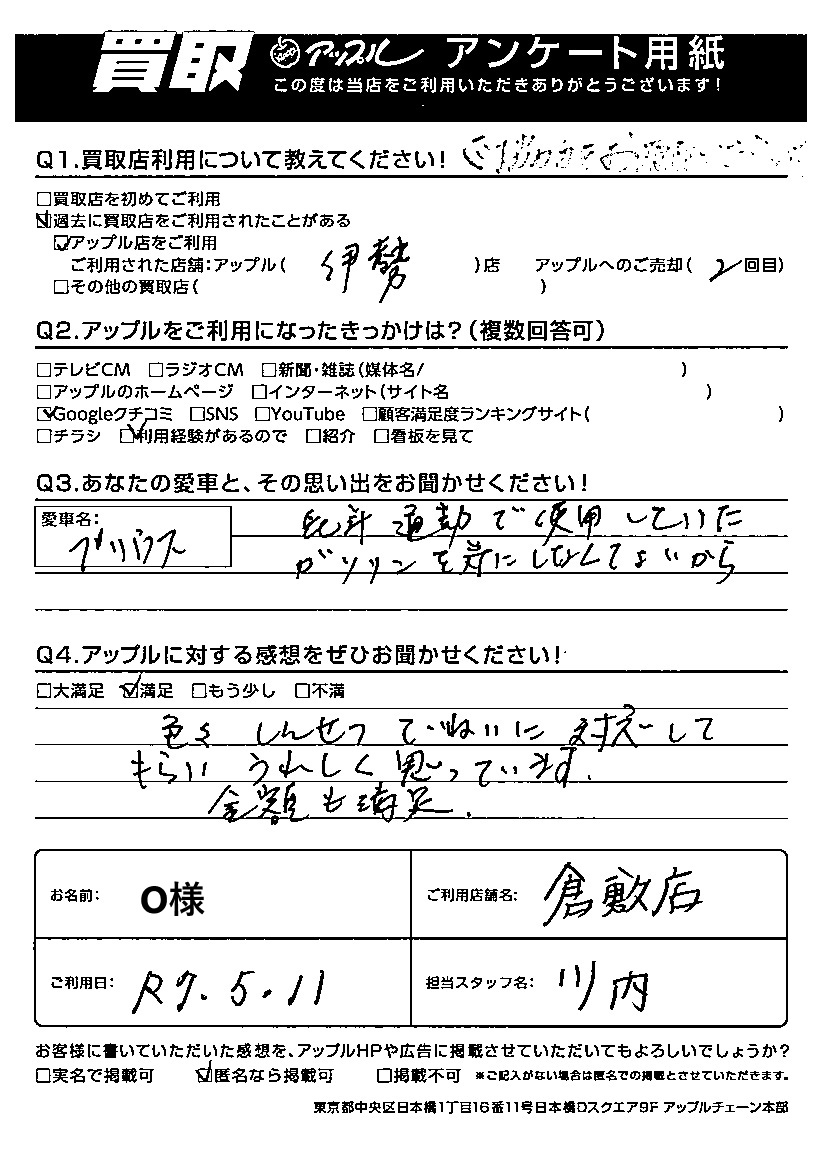 買取 アップル アンケート用紙
この度は当店をご利用いただきありがとうございます!
Q1.買取店利用について教えてください!
□買取店を初めてご利用
☑過去に買取店をご利用されたことがある
☑アップル店をご利用
ご利用された店舗:アップル( 伊勢 )店 アップルへのご売却( 2 回目)
□その他の買取店( )
Q2.アップルをご利用になったきっかけは?(複数回答可)
□テレビCM □ラジオCM □新聞・雑誌(媒体名/ )
□アップルのホームページ □インターネット(サイト名 )
☑Googleクチコミ □SNS □YouTube □顧客満足度ランキングサイト( )
□チラシ ☑利用経験があるので □紹介 □看板を見て
Q3.あなたの愛車と、その思い出をお聞かせください!
愛車名:
プリウス
通勤で使用していた
ガソリンを 気にしなくてよいから
Q4.アップルに対する感想をぜひお聞かせください!
□大満足 ☑満足 □もう少し □不満
色々 しんせつ ていねいに 対応して
もらい うれしく思っています.
金額も満足.
お名前: O様
ご利用店舗名: 倉敷店
ご利用日: R7.5.11
担当スタッフ名: 川内
お客様に書いていただいた感想を、アップルHPや広告に掲載させていただいてもよろしいでしょうか?
□実名で掲載可 ☑匿名なら掲載可 □掲載不可 ※ご記入がない場合は匿名での掲載とさせていただきます。
東京都中央区日本橋1丁目16番11号日本橋Dスクエア9F アップルチェーン本部